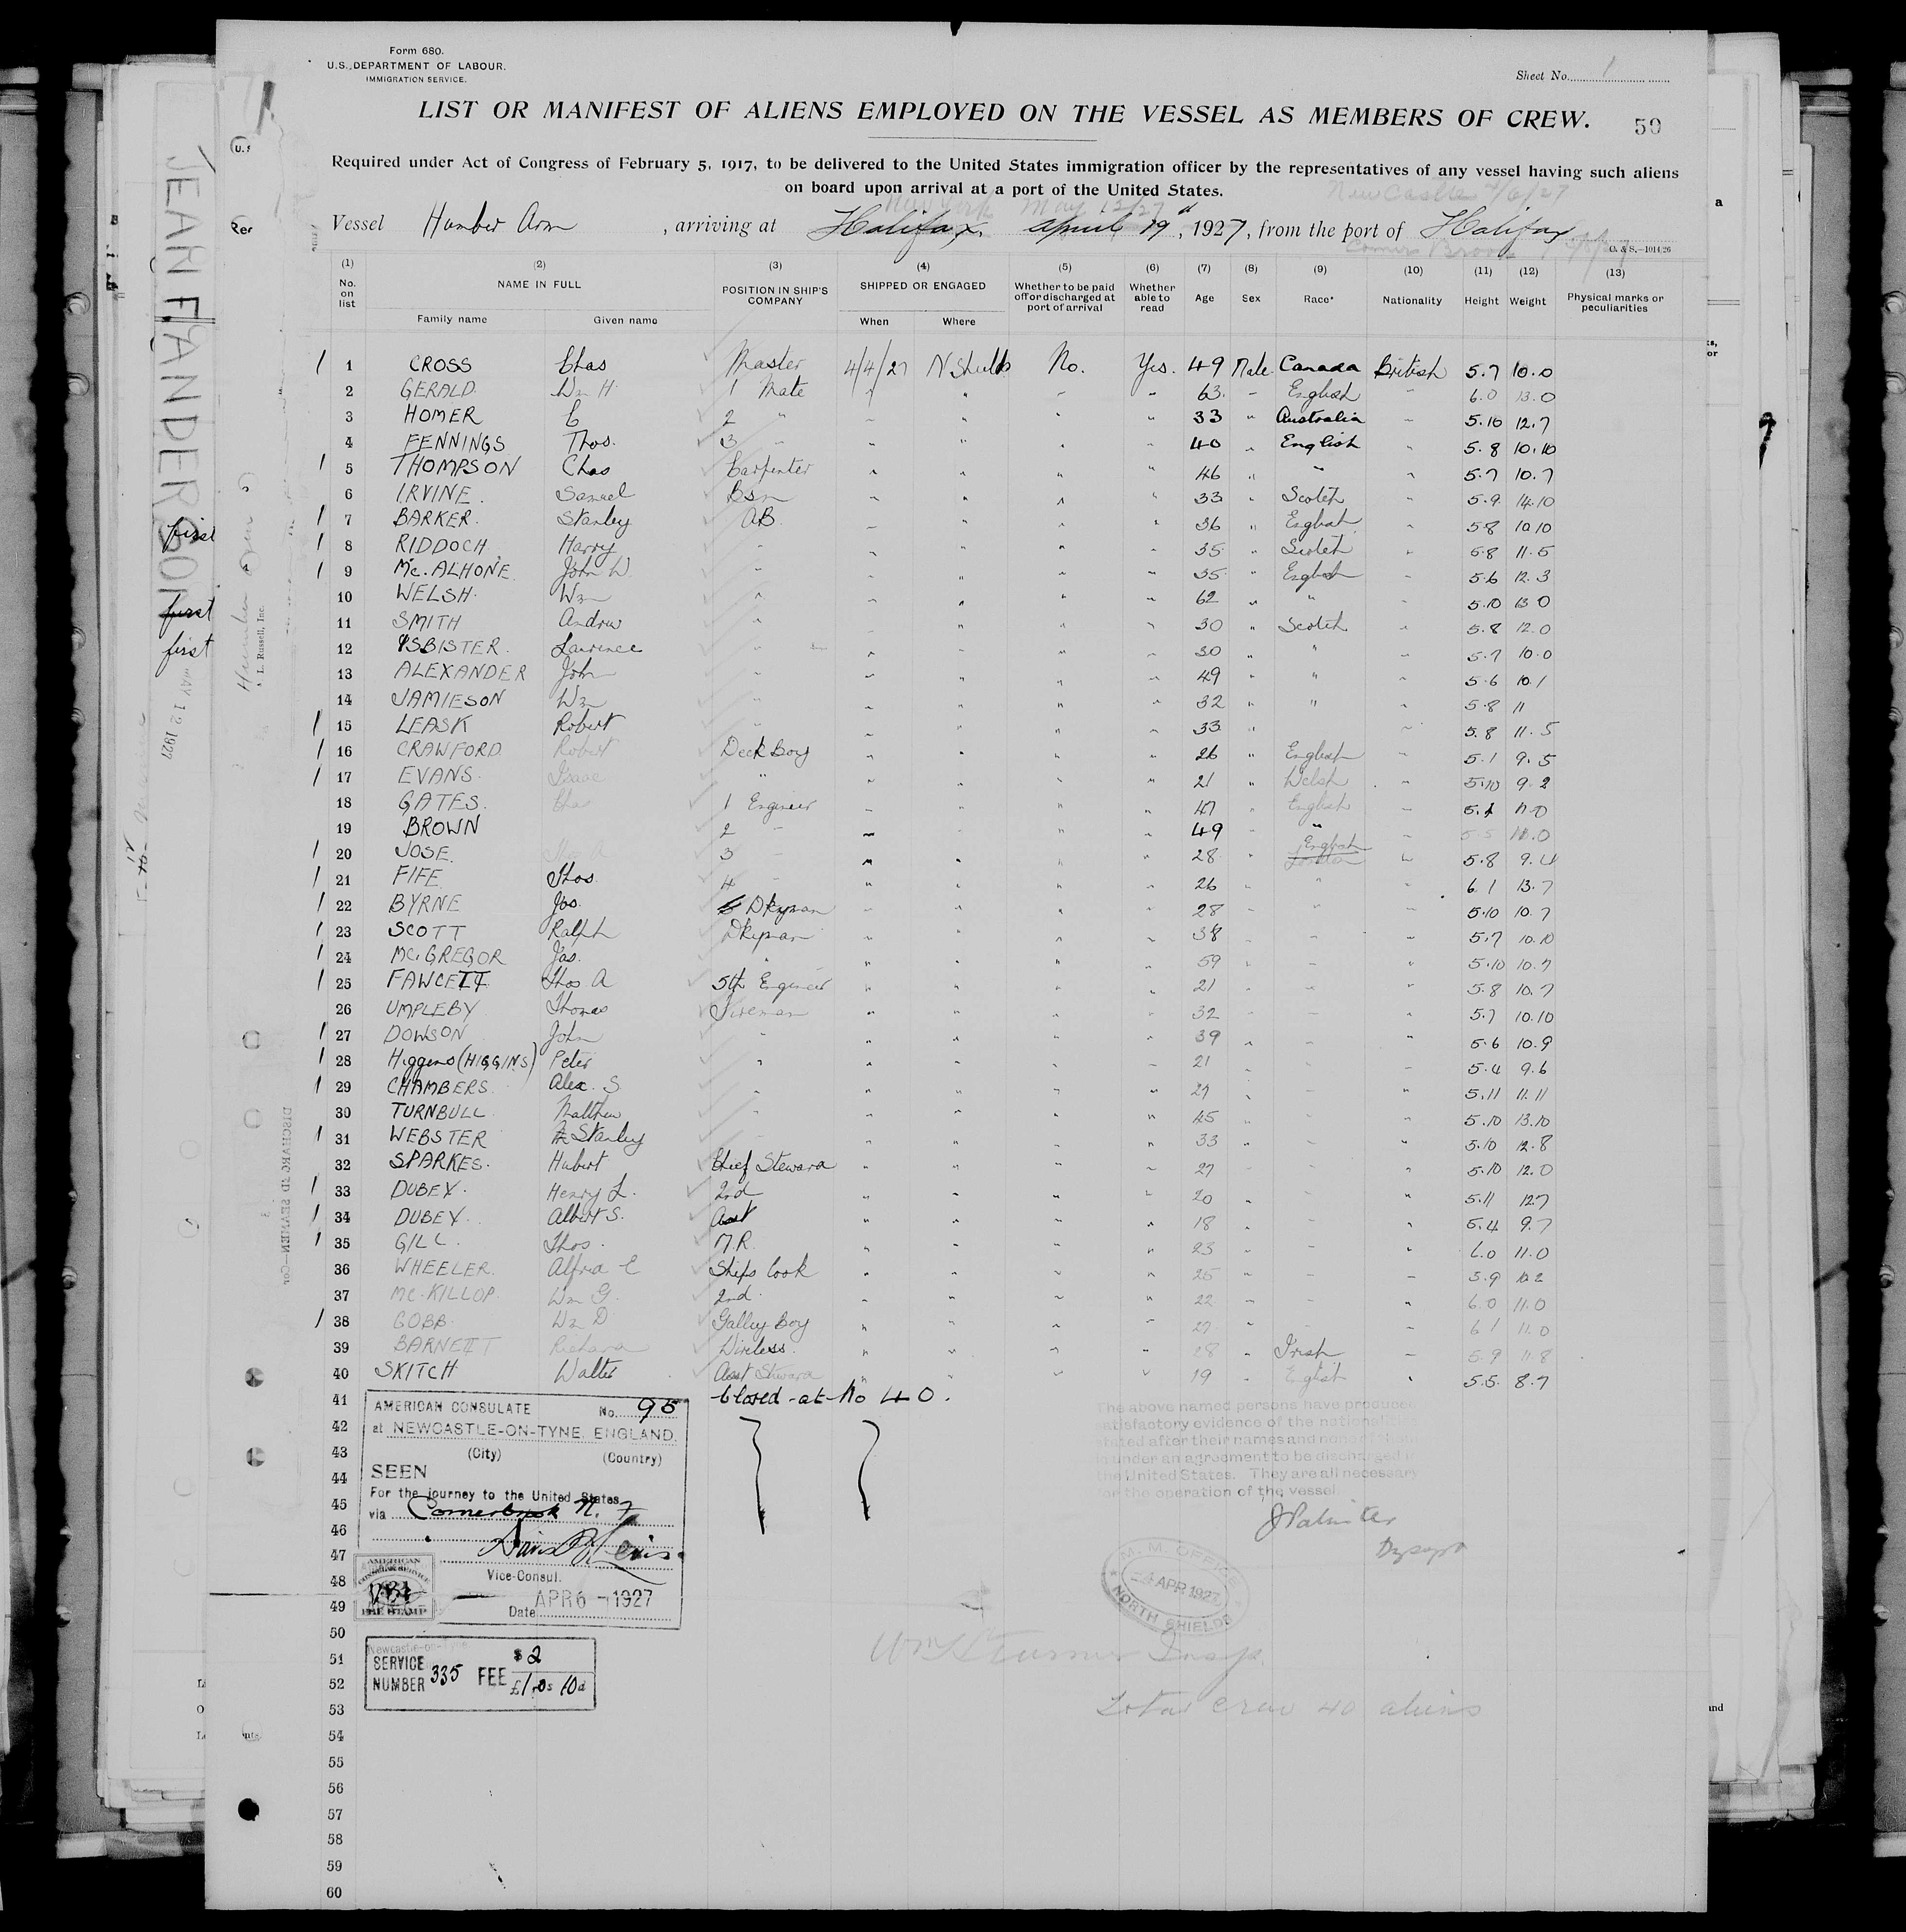 Form 680.
U.S. DEPARTMENT OF LABOUR.
IMMIGRATION SERVICE.
Sheet No. 1
LIST OR MANIFEST OF ALIENS EMPLOYED ON THE VESSEL AS MEMBERS OF CREW.
50
Required under Act of Congress of February 5, 1917, to be delivered to the United States immigration officer by the representatives of any vessel having such aliens
on board upon arrival at a port of the United States.
New York May 12/27 NewCastle 4/6/27
Vessel Humber Arm, arriving at Halifax, April 19, 1927, from the port of Halifax
O. & S.—1014/26
(1) (2) (3) (4) (5) (6) (7) (8) (9) (10) (11) (12) (13)
No. on list NAME IN FULL POSITION IN SHIP'S COMPANY SHIPPED OR ENGAGED Whether to be paid off or discharged at port of arrival Whether able to read Age Sex Race* Nationality Height Weight Physical marks or peculiarities
Family name Given name When Where
1 CROSS Chas Master 4/4/27 N Shields No. Yes. 49 Male Canada British 5.7 10.0
2 GERALD Wm H. 1 Mate " " " " 63 " English " 6.0 13.0
3 HOMER C 2 " " " " " 33 " Australia " 5.10 12.7
4 FENNINGS Thos. 3 " " " " " 40 " English " 5.8 10.10
5 THOMPSON Chas Carpenter " " " " 46 " " " 5.7 10.7
6 IRVINE Samuel Bsn " " " " 33 " Scotch " 5.9 14.10
7 BARKER. Stanley AB. " " " " 36 " English " 5.8 10.10
8 RIDDOCH Harry " " " " " 35 " Scotch " 5.8 11.5
9 Mc.ALHONE John W " " " " " 35 " English " 5.6 12.3
10 WELSH. Wm " " " " " 62 " " " 5.10 13.0
11 SMITH Andrew " " " " " 30 " Scotch " 5.8 12.0
12 ISBISTER. Laurence " " " " " 30 " " " 5.7 10.0
13 ALEXANDER John " " " " " 49 " " " 5.6 10.1
14 JAMIESON Wm " " " " " 32 " " " 5.8 11
15 LEASK Robert " " " " " 33 " " 5.8 11.5
16 CRAWFORD Robert Deck Boy " " " " 26 " English " 5.1 9.5
17 EVANS. Isaac " " " " " 21 " Welsh " 5.10 9.2
18 GATES. Chas 1 Engineer " " " " 47 " English " 11.0
19 BROWN 2 " " " " " 49 " " " 5.5
20 JOSE. 3 " " " " " 28 " English " 5.8 9.4
21 FIFE Thos. 4 " " " " " 26 " " " 6.1 13.7
22 BYRNE Jos. Dkyman " " " " 28 " " " 5.10 10.7
23 SCOTT Ralph Dkyman " " " " 38 " " " 5.7 10.10
24 Mc.GREGOR Jas. " " " " " 59 " " " 5.10 10.7
25 FAWCETT Thos A 5th Engineer " " " " 21 " " " 5.8 10.7
26 UMPLEBY Thomas Fireman " " " " 32 " " " 5.7 10.10
27 DOWSON John " " " " " 39 " " " 5.6 10.9
28 Higgens (HIGGINS) Peter " " " " " 21 " " " 5.4 9.6
29 CHAMBERS. Alex. S. " " " " " 27 " " " 5.11 11.11
30 TURNBULL Matthew " " " " " 45 " " " 5.10 13.10
31 WEBSTER Stanley " " " " " 33 " " " 5.10 12.8
32 SPARKES. Hubert Chief Steward " " " " 27 " " " 5.10 12.0
33 DUBEY. Henry L. 2nd " " " " 20 " " " 5.11 12.7
34 DUBEY. Albert S. Asst " " " " 18 " " " 5.4 9.7
35 GILL. Thos. M.R. " " " " 23 " " " 6.0 11.0
36 WHEELER. Alfred E Ships Cook " " " " 25 " " " 5.9 10.2
37 Mc.KILLOP. Wm G. 2nd. " " " " 22 " " " 6.0 11.0
38 COBB. Wm D Galley Boy " " " " 27 " " " 6.1 11.0
39 BARNETT Richard Wireless. " " " " 28 " Irish " 5.9 11.8
40 SKITCH Walter Asst Steward " " " " 19 " English " 5.5. 8.7
41 Closed at No 40.
42
43
44
45
46
47
48
49
50
51
52
53
54
55
56
57
58
59
60
AMERICAN CONSULATE No. 95
at NEWCASTLE-ON-TYNE, ENGLAND.
(City) (Country)
SEEN
For the journey to the United States
via Cornerbrook N.F
Vice-Consul.
AMERICAN CONSULAR SERVICE
FEE STAMP
Date APR 6 - 1927
Newcastle-on-Tyne
SERVICE NUMBER 335 FEE $2
£1.0s 10d
The above named persons have produced
satisfactory evidence of the nationalities
stated after their names and none of them
is under an agreement to be discharged in
the United States. They are all necessary
for the operation of the vessel
M. M. OFFICE
4 APR 1927
NORTH SHIELDS
Total crew 40 aliens
JEAN F. ANDERSON
first
first
first
MAY 12 1927
Humber Arm
L. Russell, Inc.
DISCHARGED SEAMEN